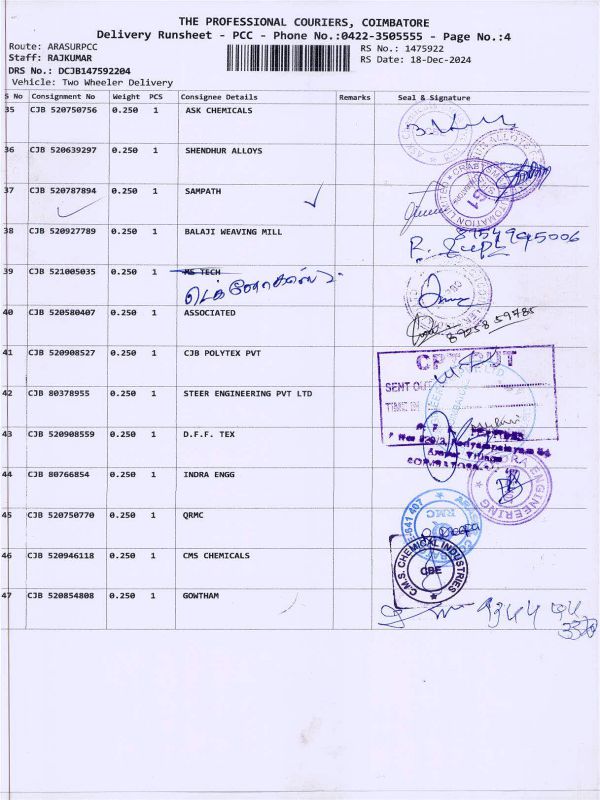 THE PROFESSIONAL COURIERS, COIMBATORE
Delivery Runsheet - PCC - Phone No.:0422-3505555 - Page No.:4
Route: ARASURPCC RS No.: 1475922
Staff: RAJKUMAR RS Date: 18-Dec-2024
DRS No.: DCJB147592204
Vehicle: Two Wheeler Delivery
S No Consignment No Weight PCS Consignee Details Remarks Seal & Signature
35 CJB 520750756 0.250 1 ASK CHEMICALS
36 CJB 520639297 0.250 1 SHENDHUR ALLOYS
37 CJB 520787894 0.250 1 SAMPATH
38 CJB 520927789 0.250 1 BALAJI WEAVING MILL
39 CJB 521005035 0.250 1 MS TECH
40 CJB 520580407 0.250 1 ASSOCIATED
89258 59785
41 CJB 520908527 0.250 1 CJB POLYTEX PVT
SENT OUT
TIME IN
42 CJB 80378955 0.250 1 STEER ENGINEERING PVT LTD
43 CJB 520908559 0.250 1 D.F.F. TEX
44 CJB 80766854 0.250 1 INDRA ENGG
ENGINEERING
45 CJB 520750770 0.250 1 QRMC
641 407
RMC
46 CJB 520946118 0.250 1 CMS CHEMICALS
C.M.S. CHEMICAL INDUSTRIES
CBE
47 CJB 520854808 0.250 1 GOWTHAM